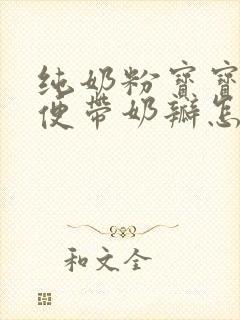 纯奶粉宝宝
便带奶瓣怎
和文全